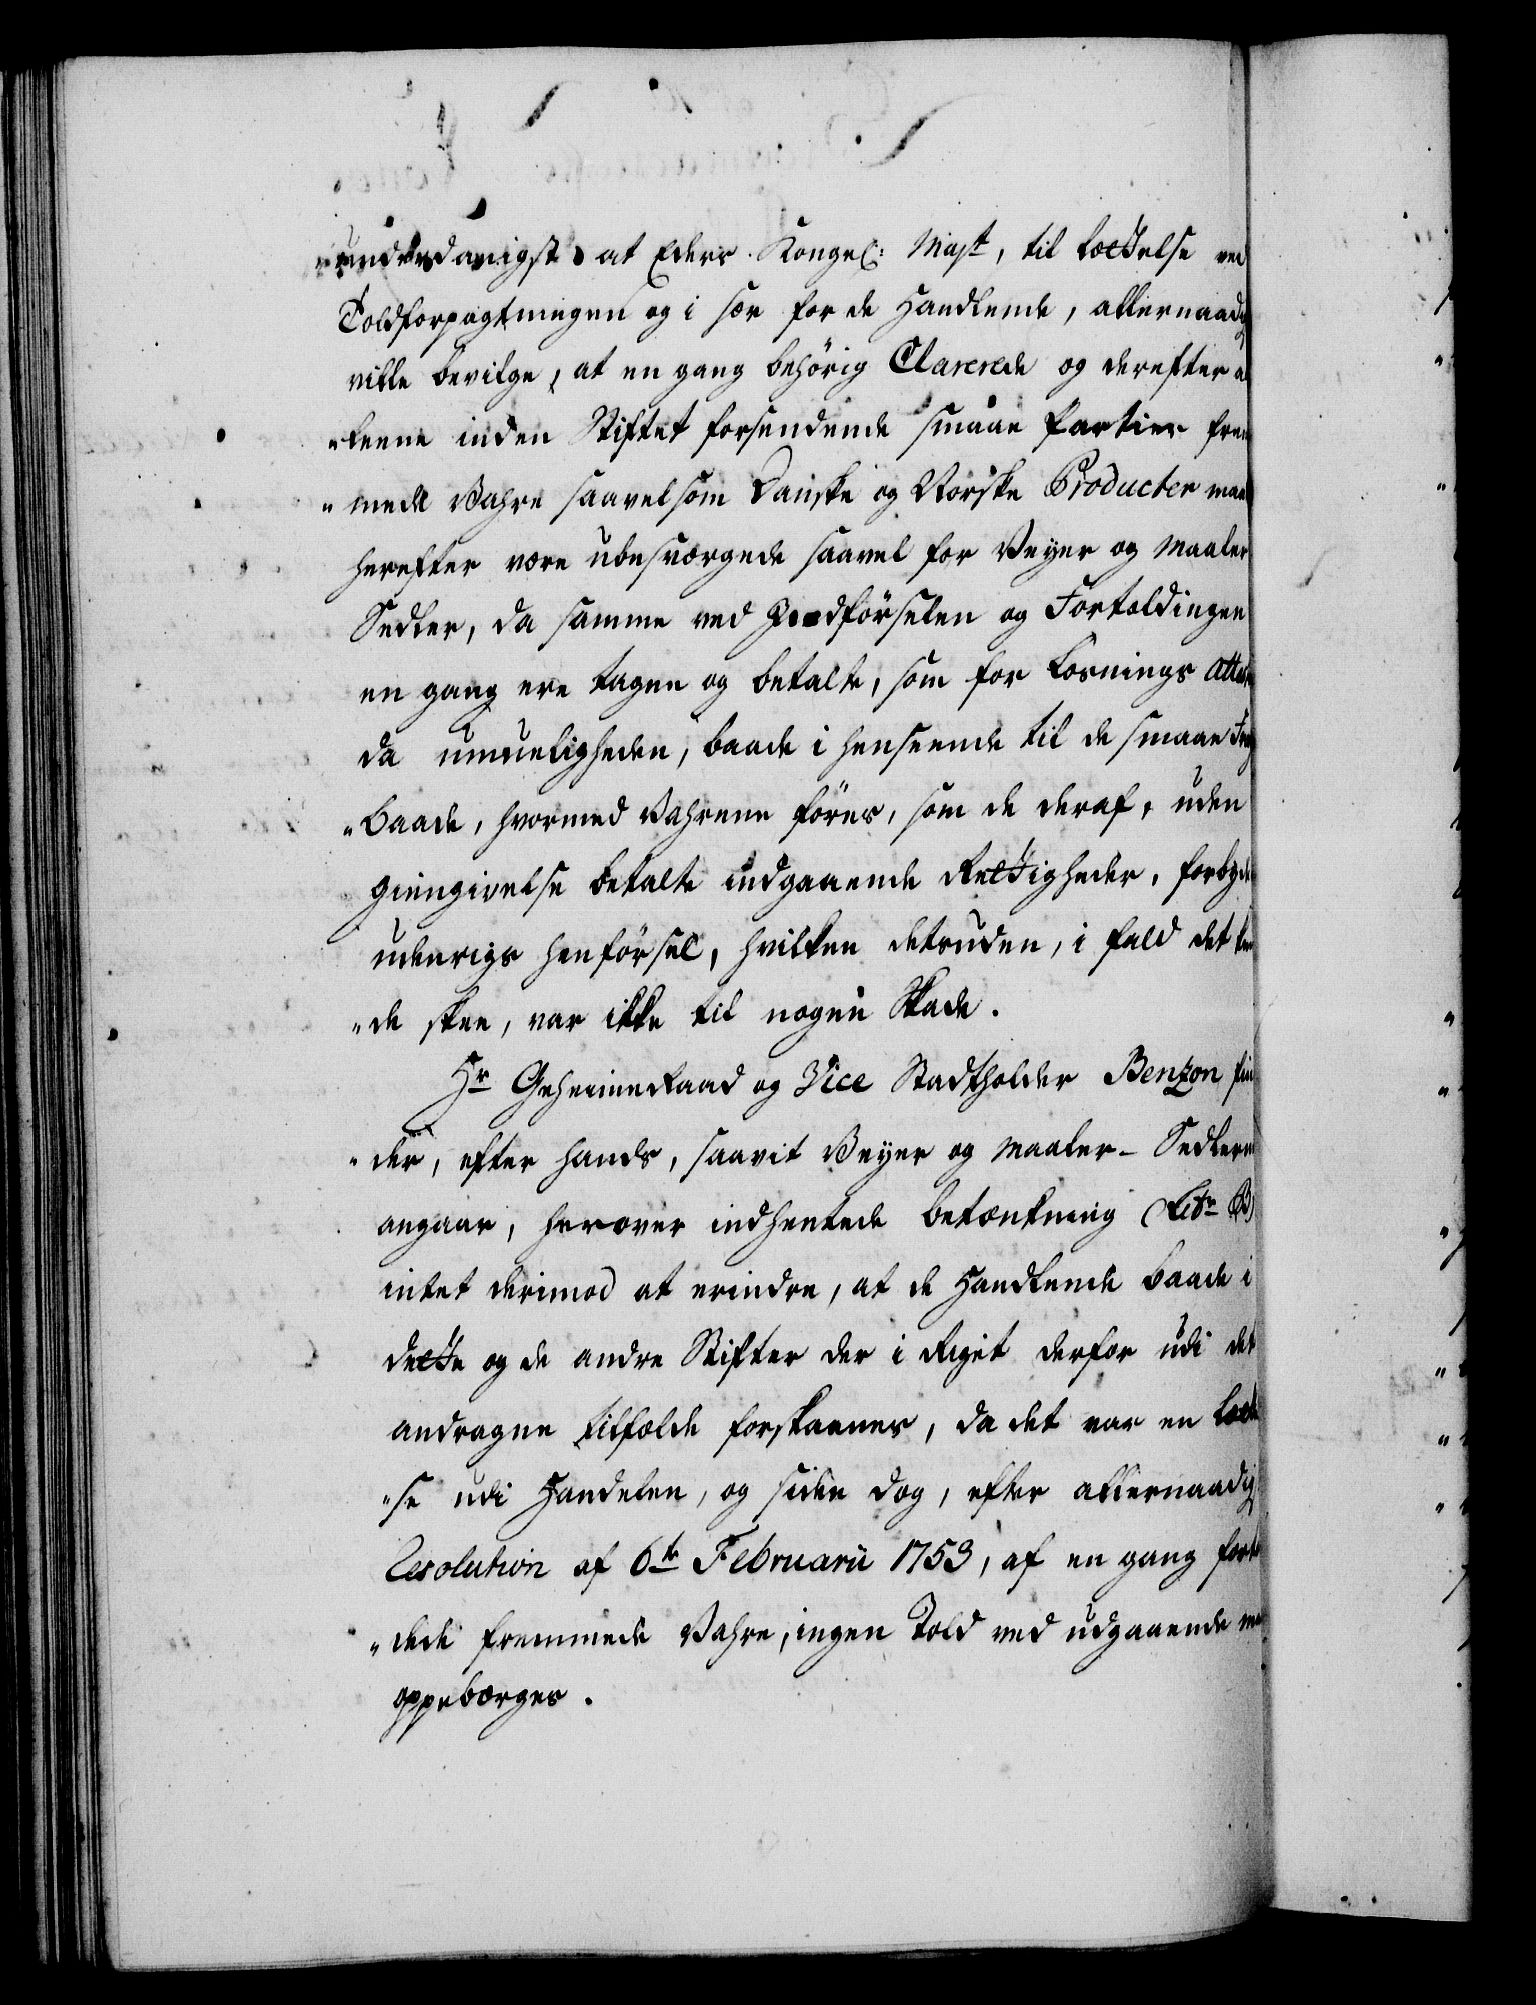 underdanigst at Eders Kongel: Mayt, til lættelse ved
Toldforpagtningen og i sær for de Handlende, allernaadigst
ville bevilge, at en gang behörig Clarerede og derefter
"leene inden Stiftet forsendende smaae Partier frem
"mede Vahre saavelsom Danske og Norske Producter maae
herefter være ubesværgede saavel for Veyer og Maaler
Sedler, da samme ved Indförselen og Fortoldingen
en gang ere tagne og betalte, som for Losnings Attester
da umueligheden, baade i henseende til de smaae
"baade, hvormed Vahrene föres, som de deraf, uden
giengivelse betalte indgaaende Rettigheder, forbyde
udenrigs henförsel, hvilken desuden, i fald det kun
"de skee, var ikke til nogen Skade.
Hr Geheimeraad og Vice Stadtholder Benzon fin
"der, efter hands, saavit Veyer og Maaler-Sedlerne
angaar, herover indhentede betænkning (Litr B)
intet derimod at erindre, at de Handlende baade i
dette og de andre Stifter der i Riget derfor udi det
andragne tilfælde forskaanes, da det var en lættel
"se udi Handelen, og siden dog, efter allernaadigst
Resolution af 6te Februarii 1753, af en gang fortol
"dede fremmede Vahre, ingen Told ved udgaaende maae
oppebærges.